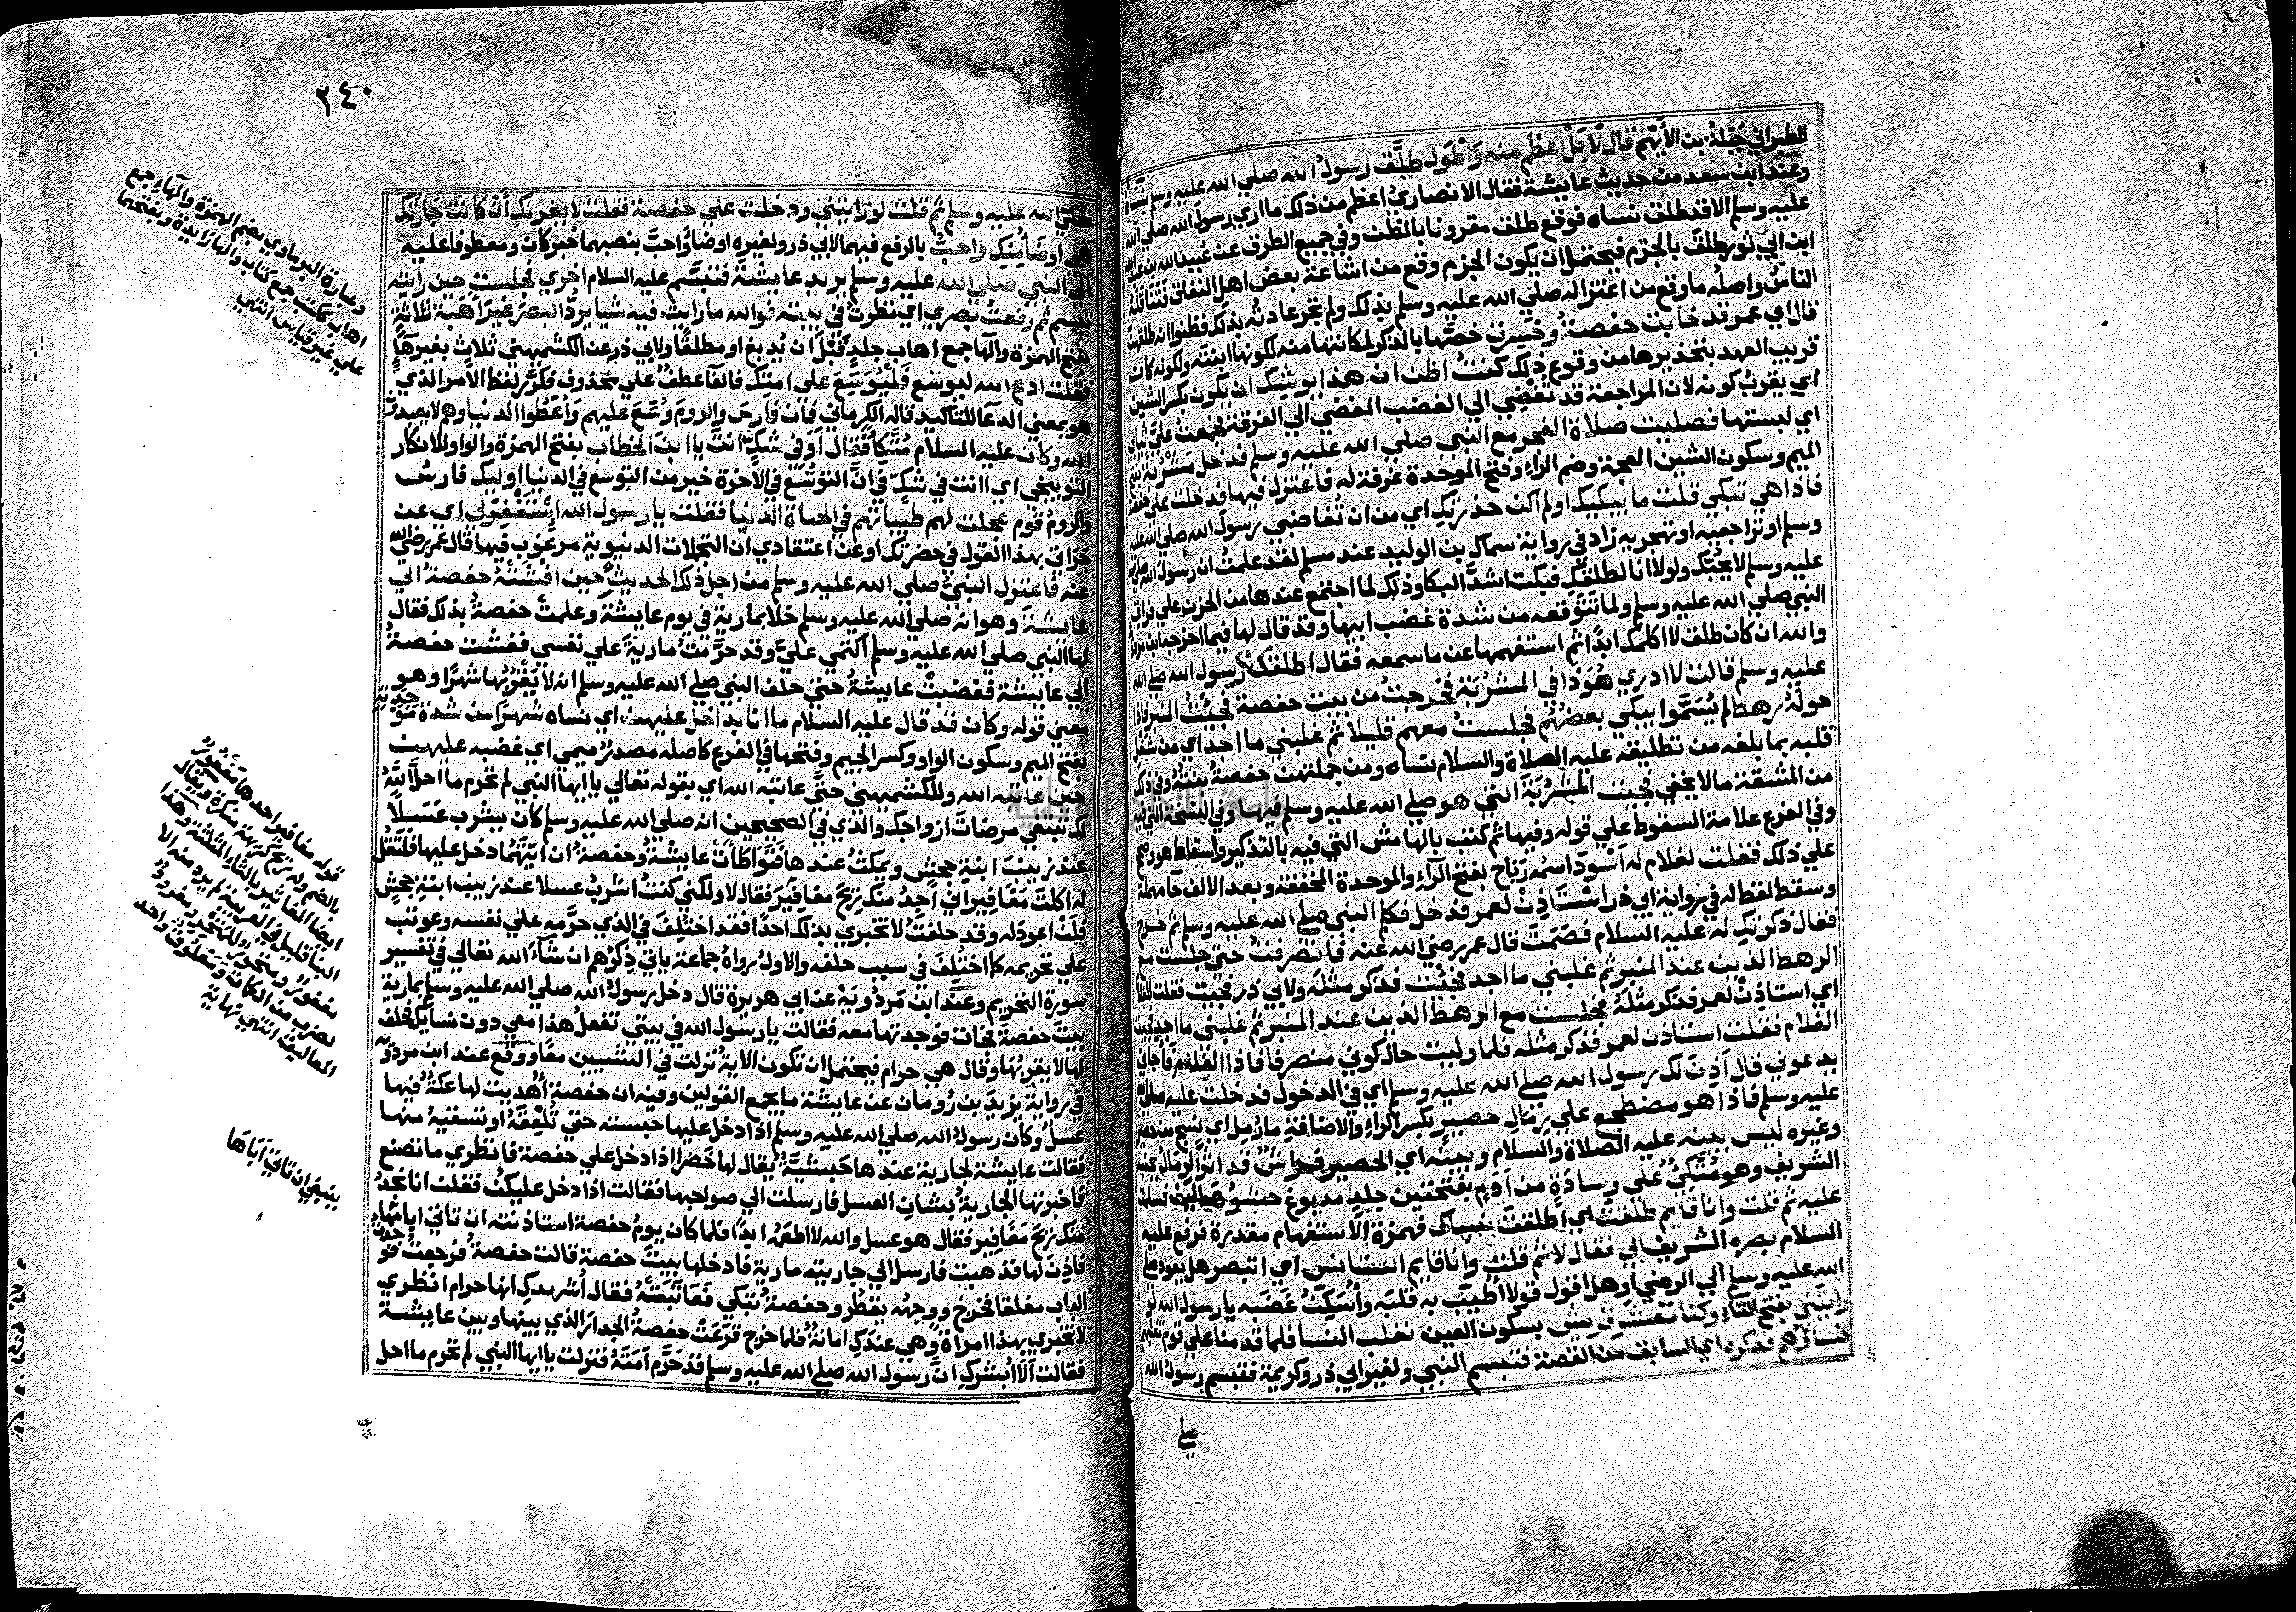 للطبراني جبلة بن الأيهم قال لا بل أعظم منه وأطول طلق رسول الله صلى الله عليه وسلم نساءه
وعند ابن سعد من حديث عايشة فقال الانصاري اعظم من ذلك ما اري رسول الله صلى الله
عليه وسلم الا قد طلق نساه فوقع طلق مقرونا بالظن وفي جميع الطرق عن عبيد الله بن عبد الله
ابن ابي ثور طلق بالجزم فيحتمل ان يكون الجزم وقع من اشاعة بعض اهل النفاق فتناقله
الناس واصله ما وقع من اعتزاله صلى الله عليه وسلم بذلك ولم تجر عادته بذلك فظنوا انه طلقهن
قال اي عمر قد خابت حفصة وخسرت خصها بالذكر لمكانتها منه لكونها ابنته ولكونه كان
قريب العهد بتحذيرها من وقوع ذلك كنت اظن ان هذا يوشك ان يكون بكسر الشين
اي يقرب كونه لان المراجعة قد تفضي الي الغضب المفضي الي الفرقة فجمعت علي ثيابي
اي لبستها فصليت صلاة الفجر مع النبي صلي الله عليه وسلم فدخل مشربة بفتح
الميم وسكون الشين المعجمة وضم الراء وفتح الموحدة غرفة له فاعتزل فيها فدخلت علي حفصة
فاذا هي تبكي قلت ما يبكيك اولم اكن حذرتك اي من ان تغاضبي رسول الله صلى الله عليه
وسلم او تراجعيه او تهجريه زاد في رواية سماك بن الوليد عند مسلم لقد علمت ان رسول الله صلى
عليه وسلم لا يحبك ولولا انا لطلقك فبكت اشد البكا وذلك لما اجتمع عندها من الحزن علي فراق
النبي صلي الله عليه وسلم ولما تتوقعه من شدة غضب ابيها وقد قال لها فيما اخرجه ابن مردويه
والله ان كان طلقك لا اكلمك ابدا ثم استفهمها عن ما سمعه فقال اطلقكن رسول الله صلى الله
عليه وسلم قالت لا ادري هو ذا في المشربة فخرجت من بيت حفصة فجيت المنبر فاذا
حوله رهط لم يسموا يبكي بعضهم فجلست معهم قليلا ثم غلبني ما اجد اي من شغل
قلبه بما بلغه من تطليقه عليه الصلاة والسلام نساه ومن جملتهن حفصة بنته وفي ذلك
من المشقة ما لا يخفي فجيت المشربة التي هو صلي الله عليه وسلم فيها وفي النسخة التي فيه
وفي الفرع علامة السقوط علي قوله وفيها ثم كتب بالهامش التي فيه بالتذكير واسقاط هو وصح
علي ذلك فقلت لغلام له اسود اسمه رباح بفتح الراء والموحدة المخففة وبعد الالف حا مهملة
وسقط لفظ له في رواية ابي ذر استاذن لعمر فدخل فكلم النبي صلي الله عليه وسلم ثم خرج
فقال ذكرتك له عليه السلام فصمت قال عمر رضي الله عنه فانصرفت حتى جلست مع
الرهط الذين عند المنبر ثم غلبني ما اجد فجيت فذكر مثله ولابي ذر فجيت فقلت للغلام
اي استاذن لعمر فذكر مثله فجلست مع الرهط الذين عند المنبر ثم غلبني ما اجد فجيت
الغلام فقلت استاذن لعمر فذكر مثله فلما وليت حال كوني منصرفا فاذا الغلام
يدعوني قال اذن لك رسول الله صلى الله عليه وسلم اي في الدخول فدخلت عليه صلى
عليه وسلم فاذا هو مضطجع علي رمال حصير بكسر الراء والاضافة ما رمل اي نسج من حصير
وغيره ليس بينه عليه الصلاة والسلام وبينه اي الحصير فراش قد اثر الرمال بجنبه
الشريف وهو متكئ علي وسادة من ادم بفتحتين جلد مدبوغ حشوها ليف فسلمت
عليه ثم قلت وانا قايم طلقت اي اطلقت نساك فهمزة الاستفهام مقدرة فرفع عليه
السلام بصره الشريف الي فقال لا ثم قلت وانا قايم استانس اي اتبصر هل يعود صلى
الله عليه وسلم الي الرضي او هل اقول قولا اطيب به قلبه واسكن غضبه يا رسول الله لو
رايتني بفتح التاء وكنا معشر قريش بسكون العين نغلب النسا فلما قدمنا علي قوم تغلبهم
نساؤهم فذكره اي السابق من القصة فتبسم النبي ولغير ابي ذر وكريمة فتبسم رسول الله
صلي
٢٤٠
صلي الله عليه وسلم ثم قلت لو رايتني ودخلت علي حفصة فقلت لا يغرنك أن كانت جارتك
هي اوضأ منك واحب بالرفع فيهما لابي ذر ولغيره اوضأ واحب بنصبهما خبر كان ومعطوفا عليه
الي النبي صلي الله عليه وسلم يريد عايشة فتبسم عليه السلام اخري فجلست حين رايته
تبسم ثم رفعت بصري اي نظرت في بيته فوالله ما رايت فيه شيا يرد البصر غير اهبة ثلاثة
بفتح الهمزة والهآ جمع اهاب جلد قبل ان يدبغ او مطلقا ولابي ذر عن الكشميهني ثلاث بغير هآ
فقلت ادع الله ليوسع فليوسع علي امتك فالفآ عطف علي محذوف فكرر لفظ الامر الذي
هو بمعني الدعآ للتاكيد قاله الكرماني فان فارس والروم وسع عليهم واعطوا الدنيا وهم لا يعبدون
الله وكان عليه السلام متكأ فقال اوفي شك انت يا ابن الخطاب بفتح الهمزة والواو للانكار
التوبيخي اي اانت في شك في ان التوسع في الآخرة خير من التوسع في الدنيا اوليك فارس
والروم قوم عجلت لهم طيباتهم في الحياة الدنيا فقلت يا رسول الله استغفر لي اي عن
جراتي بهذا القول في حضرتك او عن اعتقادي ان التجملات الدنيوية مرغوب فيها قال عمر رضي الله
عنه فاعتزل النبي صلي الله عليه وسلم من اجل ذلك الحديث حين افشته حفصة الي
عايشة وهو انه صلي الله عليه وسلم خلا بمارية في يوم عايشة وعلمت حفصة بذلك فقال
لها النبي صلي الله عليه وسلم اكتمي علي وقد حرمت مارية علي نفسي ففشت حفصة
الي عايشة فغضبت عايشة حتي حلف النبي صلي الله عليه وسلم انه لا يقربها شهرا وهو
معني قوله وكان قد قال عليه السلام ما انا بداخل عليهن اي نساه شهرا من شدة موجدته
بفتح الميم وسكون الواو وكسر الجيم وفتحها في الفرع كاصله مصدر ميمي اي غضبه عليهن
حين عاتبه الله وللكشميهني حتي عاتبه الله اي بقوله تعالي يا ايها النبي لم تحرم ما احل الله
لك تبتغي مرضات ازواجك والذي في الصحيحين انه صلي الله عليه وسلم كان يشرب عسلا
عند زينب ابنة جحش ويمكث عندها فتواطأت عايشة وحفصة ان ايتهما دخل عليها فلتقل
له اكلت مغافير اني اجد منك ريح مغافير فقال لا ولكني كنت اشرب عسلا عند زينب ابنة جحش
فلن اعود له وقد حلفت لا تخبري بذلك احدا فقد اختلف في الذي حرمه علي نفسه وعوتب
علي تحريمه كما اختلف في سبب حلفه والاول رواه جماعة ياتي ذكرهم ان شآء الله تعالي في تفسير
سورة التحريم وعند ابن مردويه عن ابي هريرة قال دخل رسول الله صلي الله عليه وسلم بمارية
بيت حفصة فجات فوجدتها معه فقالت يا رسول الله في بيتي تفعل هذا معي دون نسايك فحلف
لها لا يقربها وقال هي حرام فيحتمل ان تكون الاية نزلت في الشيئين معا ووقع عند ابن مردويه
في رواية يزيد بن رومان عن عايشة ما يجمع القولين وفيه ان حفصة أهديت لها عكة فيها
عسل وكان رسول الله صلي الله عليه وسلم اذا دخل عليها حبسته حتي تلعقه او تسقيه منها
فقالت عايشة لجارية عندها حبشية يقال لها خضرا اذا دخل علي حفصة فانظري ما تصنع
فاخبرتها الجارية بشان العسل فارسلت الي صواحبها فقالت اذا دخل عليكن فقلن انا نجد
منك ريح مغافير فقال هو عسل والله لا اطعمه ابدا فلما كان يوم حفصة استاذنته ان تاتي اباها
فاذن لها فذهبت فارسل الي جاريته مارية فادخلها بيت حفصة قالت حفصة فرجعت فوجدت
الباب مغلقا فخرج ووجهه يقطر وحفصة تبكي فعاتبته فقال أشهدك انها حرام انظري
لا تخبري بهذا امراة وهي عندك امانة فلما خرج قرعت حفصة الجدار الذي بينها وبين عايشة
فقالت ألا ابشرك ان رسول الله صلي الله عليه وسلم قد حرم امته فنزلت يا ايها النبي لم تحرم ما احل
وعبارة البرماوي بضم الهمزة والهآء جمع
اهاب ككتب جمع كتاب والها زايدة وبفتحهما
علي غير قياس انتهي
قوله مغافير احدها مغفور
بالضم وله ريح كريهة منكرة ويقال
ايضا المغاثير بالثاء المثلثة وهذا
البنا قليل في العربية لم يرد منه الا
مغفور ومنخور للمنخر ومغرود
لضرب من الكمأة ومعلوق واحد
المعاليق انتهي نهاية
ينبغي ان تاتي اباها